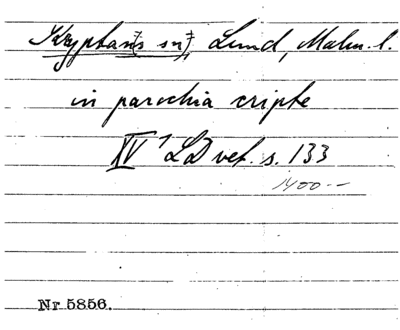 Kryptans sn, Lund, Malm. l.
in parochia cripte
XV¹ LD vet. s. 133
1400--
Nr 5856.